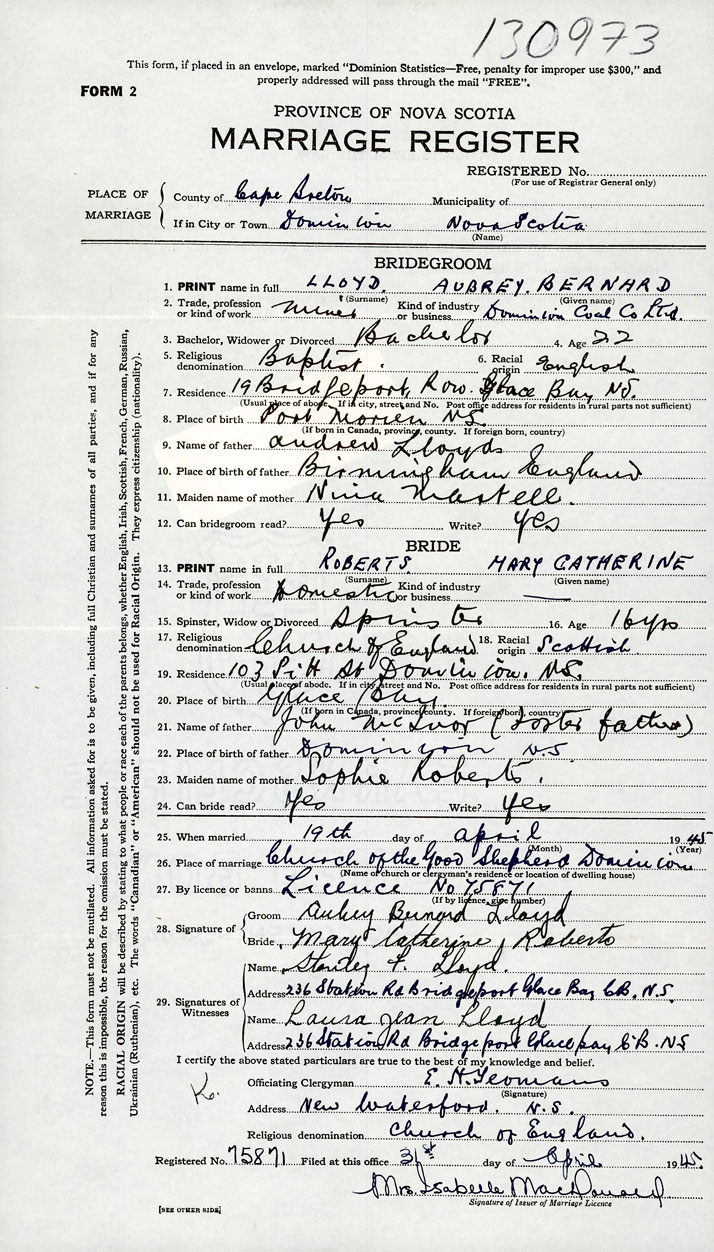 130973
This form, if placed in an envelope, marked "Dominion Statistics—Free, penalty for improper use $300," and
properly addressed will pass through the mail "FREE".
FORM 2
PROVINCE OF NOVA SCOTIA
MARRIAGE REGISTER
REGISTERED No.
(For use of Registrar General only)
PLACE OF MARRIAGE
County of Cape Breton Municipality of
If in City or Town Dominion Nova Scotia
(Name)
BRIDEGROOM
1. PRINT name in full LLOYD. AUBREY. BERNARD
(Surname) (Given name)
2. Trade, profession or kind of work Miner Kind of industry or business Dominion Coal Co Ltd.
3. Bachelor, Widower or Divorced Bachelor 4. Age 22
5. Religious denomination Baptist. 6. Racial origin English
7. Residence 19 Bridgeport, Row. Glace Bay NS.
(Usual place of abode. If in city, street and No. Post office address for residents in rural parts not sufficient)
8. Place of birth Port Morien NS.
(If born in Canada, province, county. If foreign born, country)
9. Name of father Andrew Lloyds
10. Place of birth of father Birmingham England
11. Maiden name of mother Nina Martell.
12. Can bridegroom read? Yes Write? Yes
BRIDE
13. PRINT name in full ROBERTS. MARY CATHERINE
(Surname) (Given name)
14. Trade, profession or kind of work Domestic Kind of industry or business
15. Spinster, Widow or Divorced Spinster 16. Age 16 yrs
17. Religious denomination Church of England 18. Racial origin Scottish
19. Residence 103 Pitt St Dominion. NS.
(Usual place of abode. If in city, street and No. Post office address for residents in rural parts not sufficient)
20. Place of birth Glace Bay
(If born in Canada, province, county. If foreign born, country)
21. Name of father John McIvor (Foster father)
22. Place of birth of father Dominyon N.S.
23. Maiden name of mother Sophie Roberts.
24. Can bride read? Yes Write? Yes
25. When married 19th day of April 1945
(Month) (Year)
26. Place of marriage Church of the Good Shepherd Dominion
(Name of church or clergyman's residence or location of dwelling house)
27. By licence or banns Licence No 75871
(If by licence, give number)
28. Signature of
Groom Aubey Bernard Lloyd
Bride Mary Catherine Roberts
29. Signatures of Witnesses
Name Stanley F. Lloyd.
Address 236 Station Rd Bridgeport Glace Bay CB. N.S.
Name Laura Jean Lloyd
Address 236 Station Rd Bridgeport Glace bay CB. NS
I certify the above stated particulars are true to the best of my knowledge and belief.
K.
Officiating Clergyman E. H. Yeomans
(Signature)
Address New Waterford. N.S.
Religious denomination Church of England.
Registered No. 75871 Filed at this office 31st day of April 1945.
Mrs. Isabelle MacDonald
Signature of Issuer of Marriage Licence
[SEE OTHER SIDE]
NOTE.—This form must not be mutilated. All information asked for is to be given, including full Christian and surnames of all parties, and if for any
reason this is impossible, the reason for the omission must be stated.
RACIAL ORIGIN will be described by stating to what people or race each of the parents belongs, whether English, Irish, Scottish, French, German, Russian,
Ukrainian (Ruthenian), etc. The words "Canadian" or "American" should not be used for Racial Origin. They express citizenship (nationality).